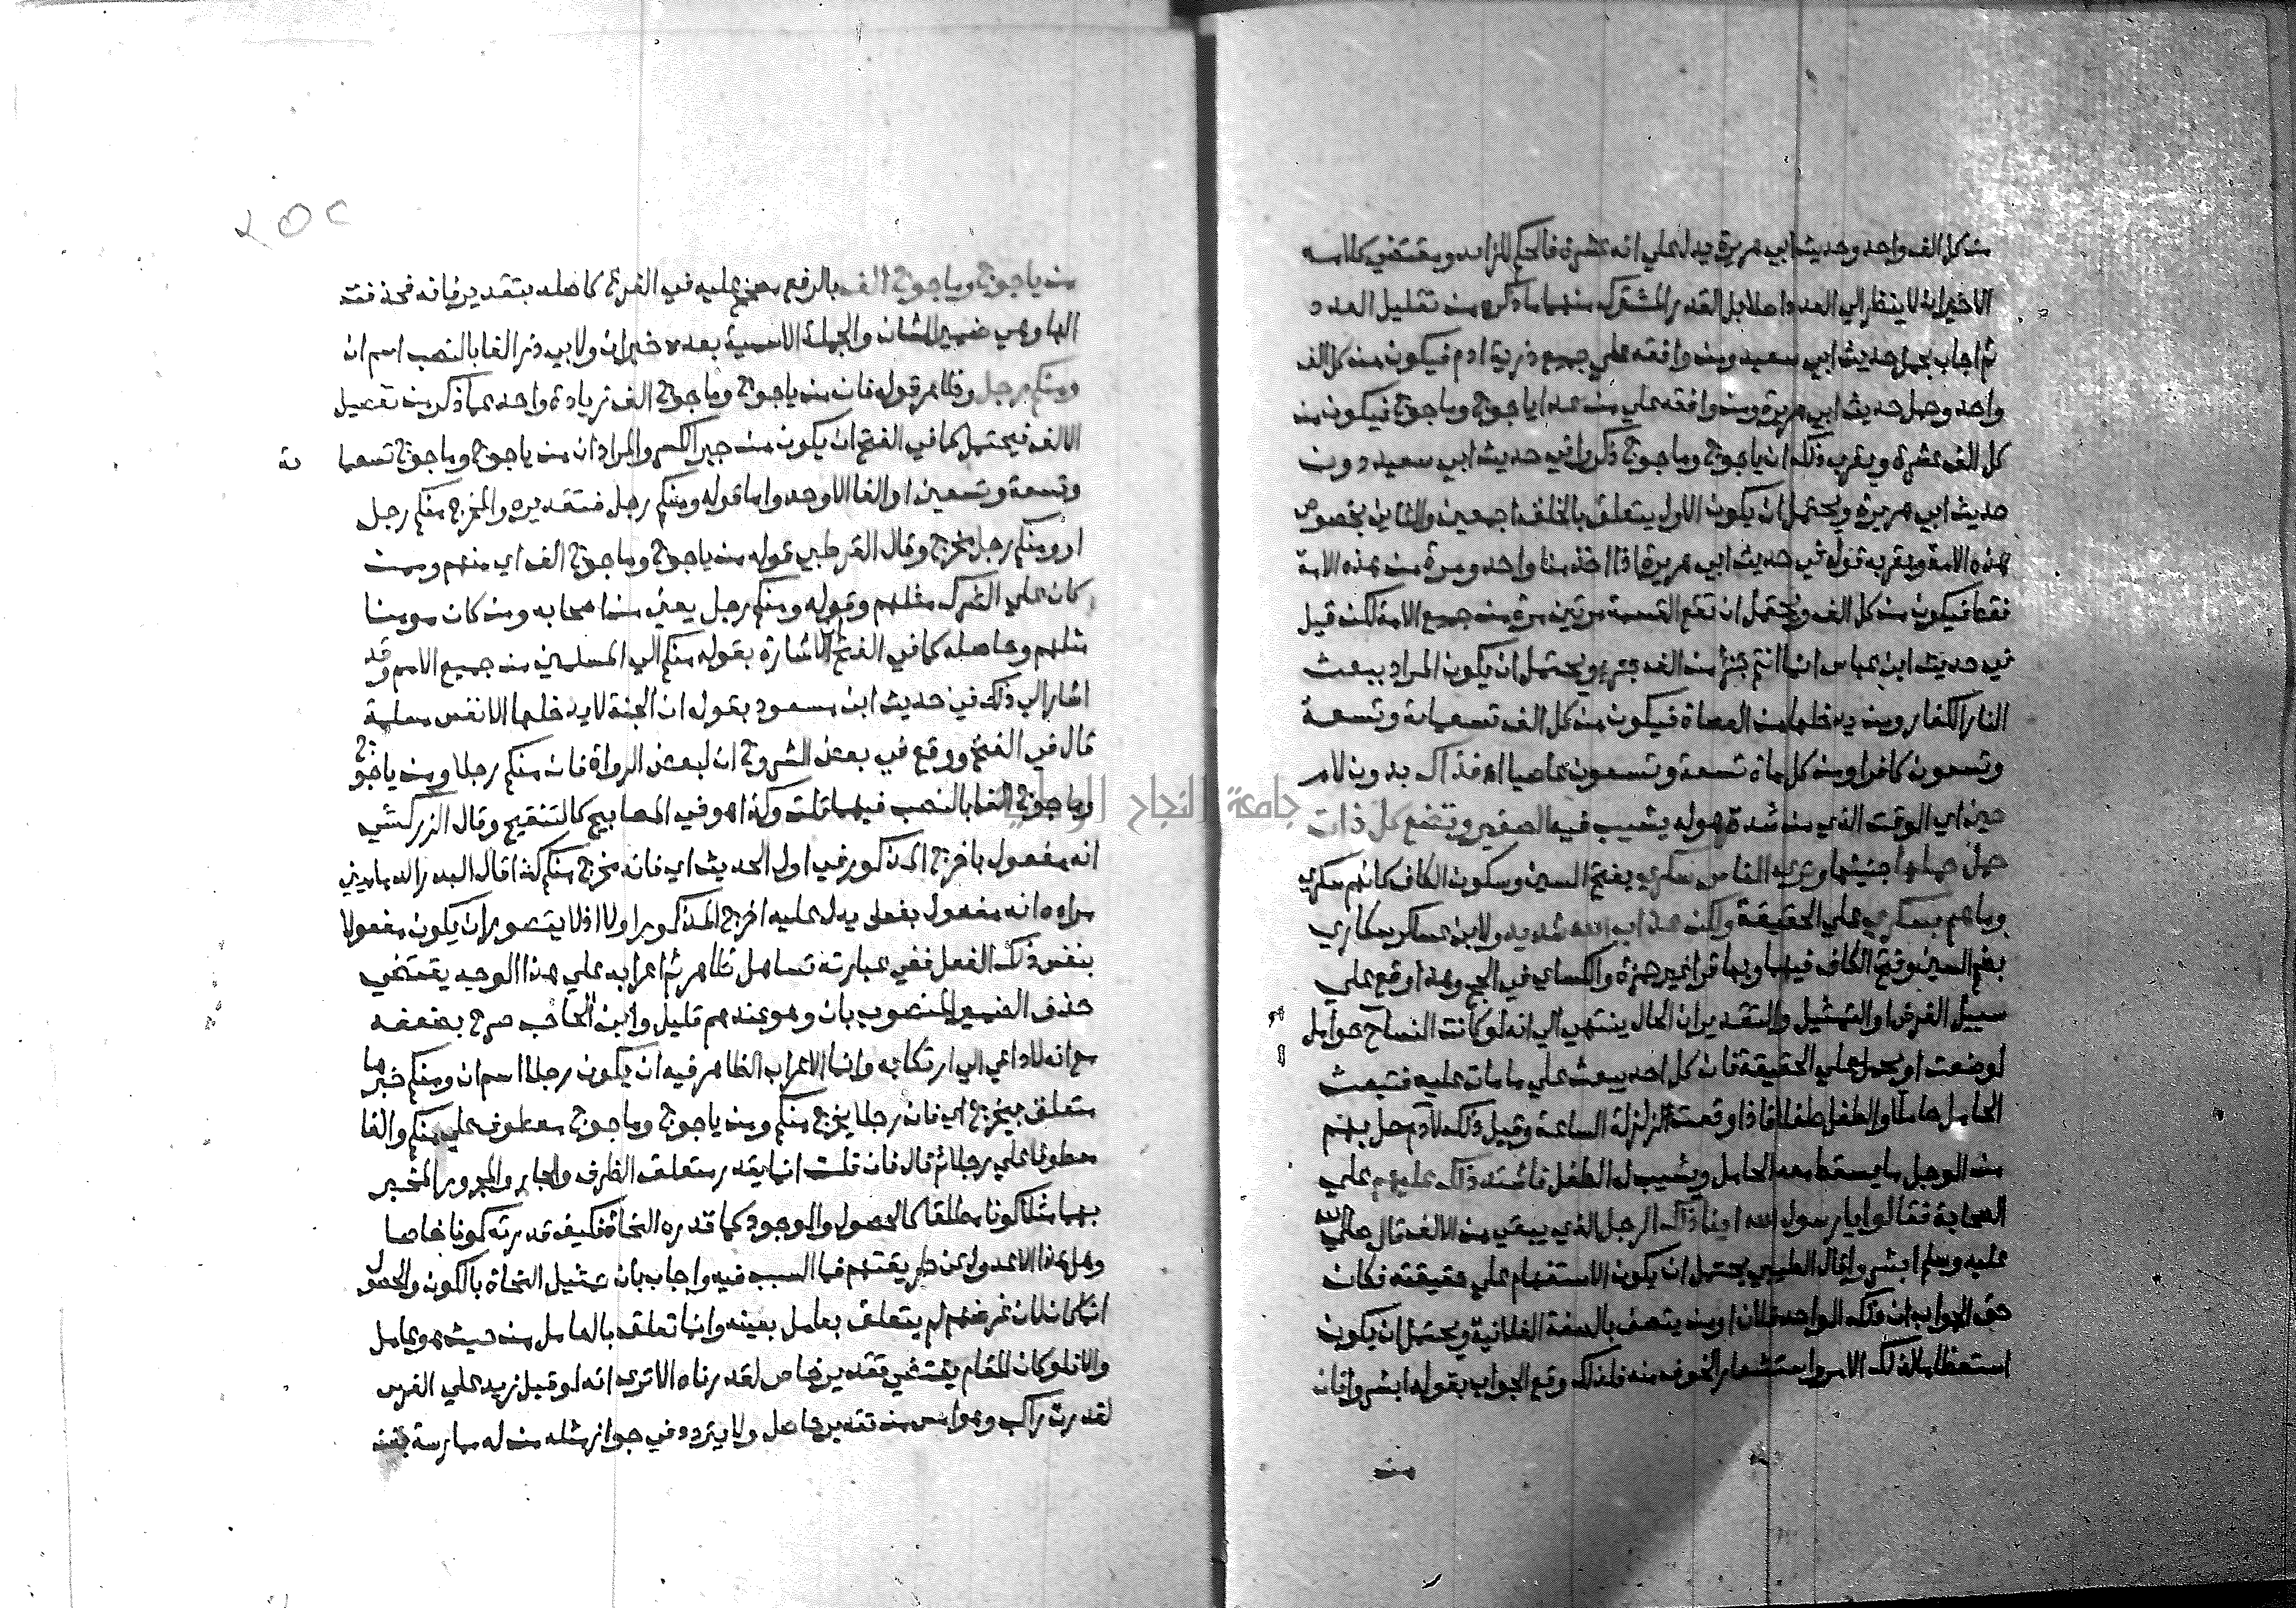 من كل الف واحد وحديث ابي هريرة يدل علي انه عشرة فالحكم للزايد ويقتضي كلامه
الاخير ان لا ينظر الي العدد اصلا بل القدر المشترك منهما ما ذكره من تقليل العدد
ثم اجاب بحمل حديث ابي سعيد ومن وافقه علي جميع ذرية ادم فيكون من كل الف
واحد وحمل حديث ابي هريرة ومن وافقه علي من عدا ياجوج وماجوج فيكون من
كل الف عشرة ويقرب ذلك ان ياجوج وماجوج ذكروا في حديث ابي سعيد دون
حديث ابي هريرة ويحتمل ان يكون الاول يتعلق بالخلق اجمعين والثاني بخصوص
هذه الامة ويقربه قوله في حديث ابي هريرة اذا اخذ منا واحد ومرة من هذه الامة
فقط فيكون من كل الف ويحتمل ان تقع القسمة مرتين مرة من جميع الامة لكن قيل
في حديث ابن عباس انما انتم جزأ من الف جزء ويحتمل ان يكون المراد ببعث
النار الكفار ومن يدخلها من العصاة فيكون من كل الف تسعماية وتسعة
وتسعون كافرا ومن كل ماة تسعة وتسعون عاصيا اه فذاك بدون لام
حين اي الوقت الذي من شدة هوله يشيب فيه الصغير وتضع كل ذات
حمل حملها جنينها وتري الناس سكري بفتح السين وسكون الكاف كانهم سكري
وما هم بسكري علي الحقيقة ولكن عذاب الله شديد ولابن عساكر سكاري
بضم السين وفتح الكاف فيهما وبها قرا غير حمزة والكساي في الحج وهذا وقع علي
سبيل الفرض او التمثيل والتقدير ان الحال ينتهي الي انه لو كانت النساح حوامل
لوضعت او يحمل علي الحقيقة فان كل احد يبعث علي ما مات عليه فتبعث
الحامل حاملا والطفل طفلا فاذا وقعت زلزلة الساعة وقيل ذلك لادم حل بهم
من الوجل ما يسقط معه الحامل ويشيب له الطفل فاشتد ذلك عليهم علي
الصحابة فقالوا يا رسول الله اينا ذلك الرجل الذي يبقي من الالف قال صلي الله
عليه وسلم ابشروا قال الطيبي يحتمل ان يكون الاستفهام علي حقيقته فكان
حق الجواب ان ذلك الواحد فلان او من يتصف بالصفة الفلانية ويحتمل ان يكون
استعظاما لذلك الامر واستشعار الخوف منه فلذلك وقع الجواب بقوله ابشروا فان
من
٢٥٢
من ياجوج وماجوج الف بالرفع عليه في الفرع كاصله بتقدير فانه فحذفت
الها وهي ضمير الشان والجملة الاسمية بعده خبر ان ولابي ذر الفا بالنصب اسم ان
ومنكم رجل وظاهر قوله فان من ياجوج وماجوج الف زيادة واحد عما ذكر من تفصيل
الالف فيحتمل كما في الفتح ان يكون من جبر الكسر والمراد ان من ياجوج وماجوج تسعما ية
وتسعة وتسعين او الفا الا واحد واما قوله ومنكم رجل فتقديره والمخرج منكم رجل
او ومنكم رجل مخرج وقال القرطبي قوله من ياجوج وماجوج الف اي منهم وممن
كان علي الشرك مثلهم وقوله ومنكم رجل يعني من اصحابه ومن كان مومنا
مثلهم وحاصله كما في الفتح ان الاشارة بقوله منكم الي المسلمين من جميع الامم وقد
اشار الي ذلك في حديث ابن مسعود بقوله ان الجنة لا يدخلها الا نفس مسلمة
قال في الفتح ووقع في بعض الشروح ان لبعض الرواة فان منكم رجلا ومن ياجوج
وماجوج الفا بالنصب فيهما قلت وكذا هو في المصابيح كالتنقيح وقال الزركشي
انه مفعول باخرج المذكور في اول الحديث اي فانه يخرج منكم كذا قال البدر الدماميني
مراده انه مفعول بفعل يدل عليه اخرج المذكور اولا اذ لا يتصور ان يكون مفعولا
بنفس ذلك الفعل ففي عبارته تساهل ظاهر ثم اعرابه علي هذا الوجه يقتضي
حذف الضمير المنصوب بان وهو عندهم قليل وابن الحاجب صرح بضعفه
مع انه لا داعي الي ارتكابه وانما الاعراب الظاهر فيه ان يكون رجلا اسم ان ومنكم خبرها
متعلق بيخرج اي فان رجلا يخرج منكم ومن ياجوج وماجوج معطوف علي منكم والفا
معطوفا علي رجلا ثم قال فان قلت انما يقدر متعلق الظرف والجار والمجرور المخبر
بهما مثلا كونا مطلقا كالحصول والوجود كما قدره النحاة فكيف قدرته كونا خاصا
وهل هذا الا عدول عن طريقتهم فما السبب فيه واجاب بان تمثيل النحاة بالكون والحصول
انما كان لان غرضهم لم يتعلق بعامل بعينه وانما تعلق بالعامل من حيث هو عامل
والا فلو كان المقام يقتضي تقدير خاص لقدرناه الا تري انه لو قيل زيد علي الفرس
لقدرت راكب وهو امس من تقدير حاصل ولا يتردد في جواز مثله من له ممارسة بفن
جامعة النجاح الوطنية